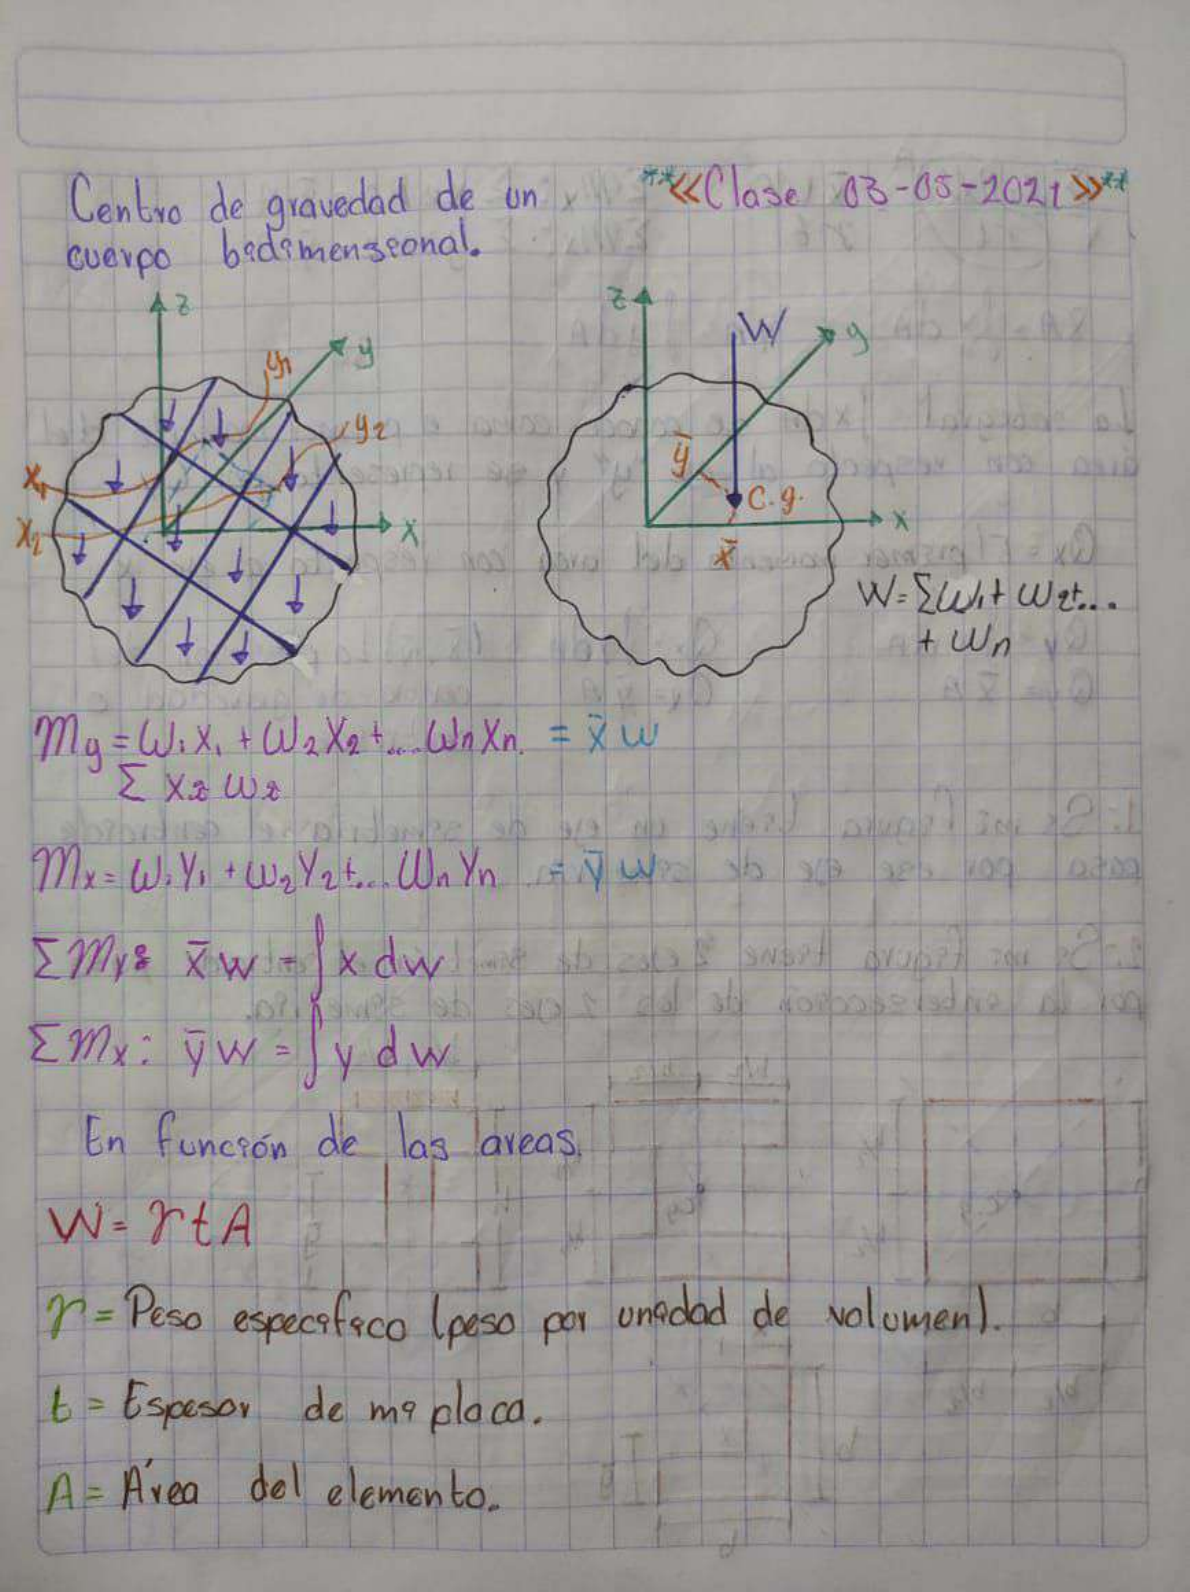 Centro de gravedad de un
cuerpo bidimensional.
**«Clase 03-05-2021»**
z
y
x
y1
y2
x1
x2
z
W
y
ȳ
c.g.
x
x̄
W=Σω1+ω2+...
+ωn
My=ω1X1+ω2X2+....ωnXn. = x̄ω
Σ Xi ωi
Mx=ω1Y1+ω2Y2+... ωnYn = ȳω
ΣMy: x̄w = ∫x dw
ΣMx: ȳw = ∫y dw
En función de las areas.
W= γtA
γ= Peso especifico (peso por unidad de volumen).
t= Espesor de mi placa.
A= Área del elemento.